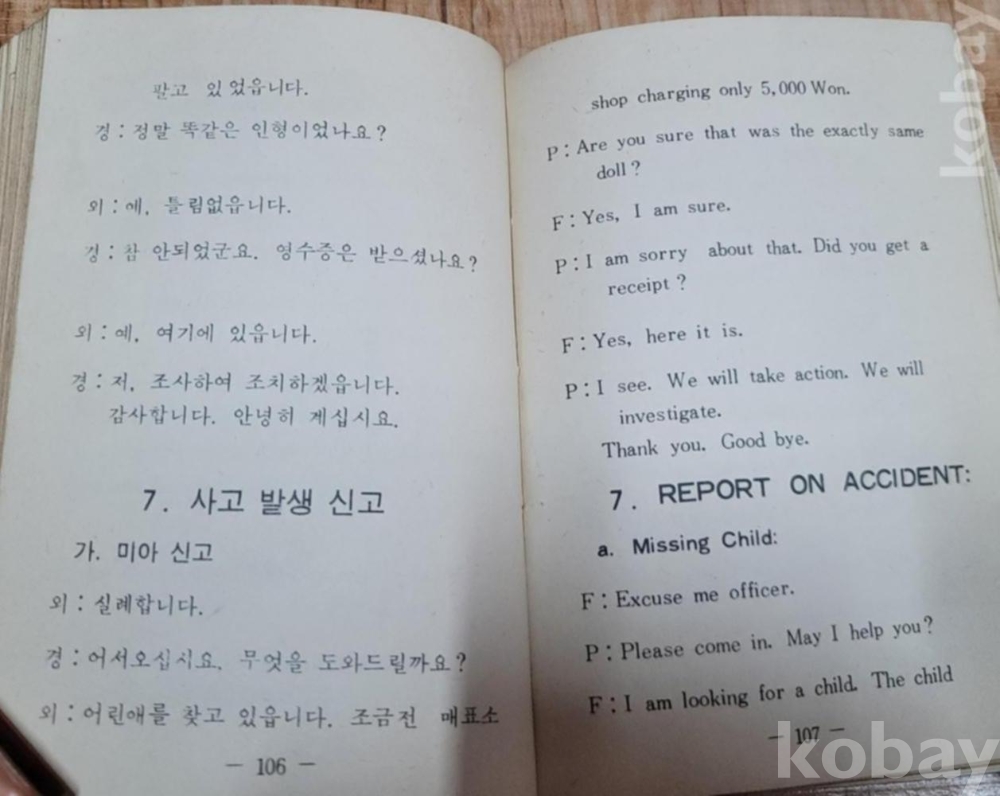 팔고 있었읍니다.
경 : 정말 똑같은 인형이었나요?
외 : 예, 틀림없읍니다.
경 : 참 안되었군요. 영수증은 받으셨나요?
외 : 예, 여기에 있읍니다.
경 : 저, 조사하여 조치하겠읍니다.
감사합니다. 안녕히 계십시요.
7. 사고 발생 신고
가. 미아 신고
외 : 실례합니다.
경 : 어서오십시요. 무엇을 도와드릴까요?
외 : 어린애를 찾고 있읍니다. 조금전 매표소
— 106 —
shop charging only 5,000 Won.
P : Are you sure that was the exactly same
doll ?
F : Yes, I am sure.
P : I am sorry about that. Did you get a
receipt ?
F : Yes, here it is.
P : I see. We will take action. We will
investigate.
Thank you. Good bye.
7. REPORT ON ACCIDENT:
a. Missing Child:
F : Excuse me officer.
P : Please come in. May I help you?
F : I am looking for a child. The child
— 107 —
kobay
kobay